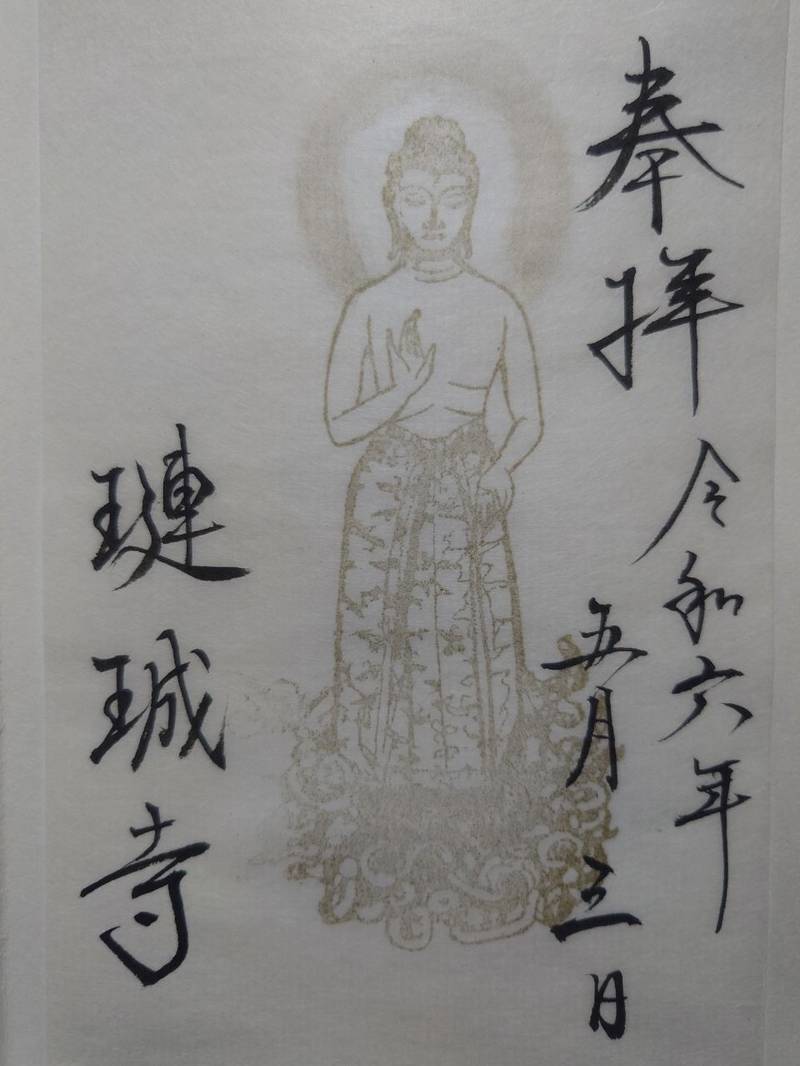 奉拝
令和六年
五月三日
璉珹寺